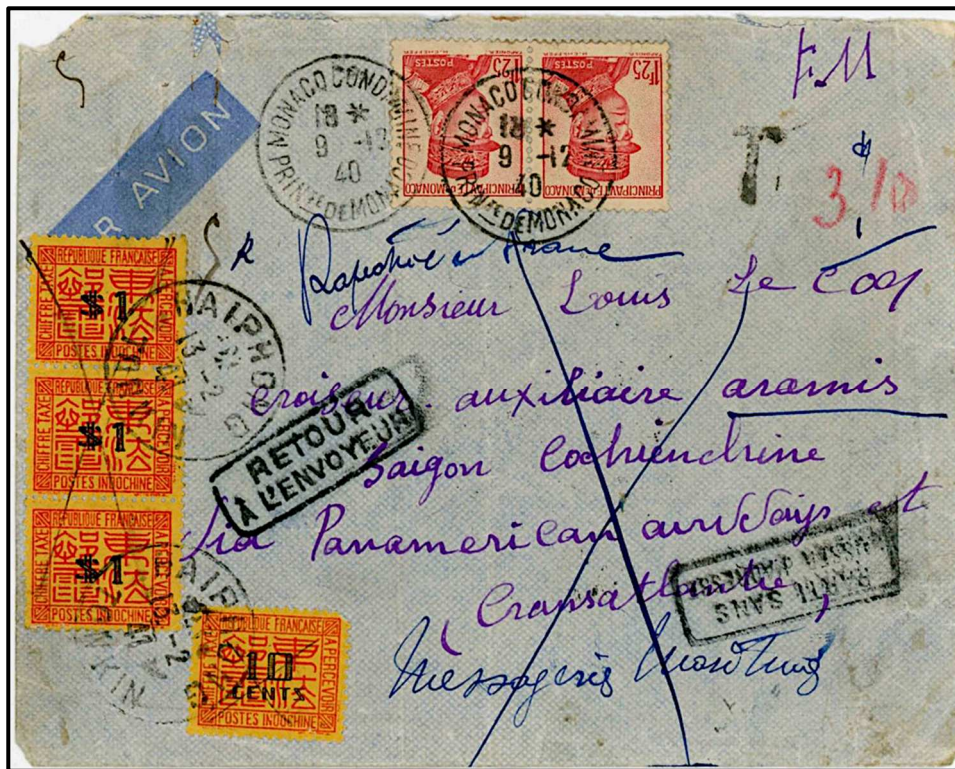 F.M
MONACO CONDAMINE
18 *
9 -12
40
PRIN.TÉ DE MONACO
MONACO CONDAMINE
18 *
9 -12
40
PRIN.TÉ DE MONACO
POSTES
1F25
PRINCIPAUTÉ DE MONACO
POSTES
1F25
PRINCIPAUTÉ DE MONACO
T
3/10
PAR AVION
Monsieur Louis Le Coq
croiseur auxiliaire aramis
Saigon Cochinchine
Via Panamerican
(Transatlantic)
Messageries Maritimes
RETOUR
À L'ENVOYEUR
PARTI SANS
LAISSER D'ADRESSE
HAIPHONG
TONKIN
REPUBLIQUE FRANÇAISE
CHIFFRE TAXE
$1
A PERCEVOIR
POSTES INDOCHINE
REPUBLIQUE FRANÇAISE
CHIFFRE TAXE
$1
A PERCEVOIR
POSTES INDOCHINE
REPUBLIQUE FRANÇAISE
CHIFFRE TAXE
$1
A PERCEVOIR
POSTES INDOCHINE
REPUBLIQUE FRANÇAISE
10
CENTS
A PERCEVOIR
POSTES INDOCHINE